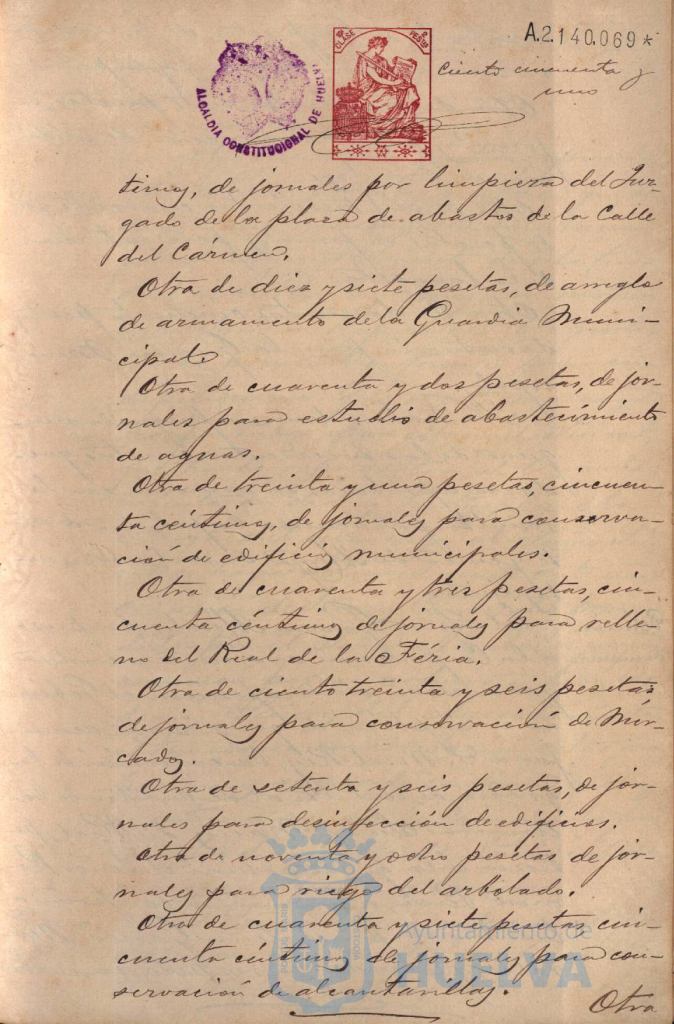 A.2.140.069*
10ª CLASE 2 PESTAS
ALCALDIA CONSTITUCIONAL DE HUELVA
Ciento cincuenta y
uno
timos, de jornales por limpieza del Juz-
gado de la plaza de abastos de la Calle
del Cármen.
Otra de diez y siete pesetas, de arreglo
de armamento de la Guardia Muni-
cipal
Otra de cuarenta y dos pesetas, de jor-
nales para estudio de abastecimiento
de aguas.
Otra de treinta y una pesetas, cincuen-
ta céntimos, de jornales para conserva-
ción de edificios municipales.
Otra de cuarenta y tres pesetas, cin-
cuenta céntimos de jornales para relle-
no del Real de la Féria.
Otra de ciento treinta y seis pesetas
de jornales para conservación de Mer-
cados.
Otra de setenta y seis pesetas, de jor-
nales para desinfección de edificios.
Otra de noventa y ocho pesetas de jor-
nales para riego del arbolado.
Otra de cuarenta y siete pesetas cin-
cuenta céntimos de jornales para con-
servación de alcantarillas.
Otra
Ayuntamiento de
HUELVA